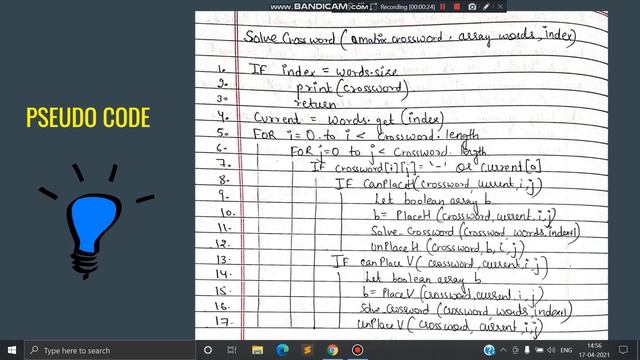 WWW.BANDICAM.COM
Recording [00:00:24]
PSEUDO CODE
Solve Crossword (matrix crossword, array words, index)
1. IF index = words.size
2. print (crossword)
3. return
4. Current = words.get (index)
5. FOR i=0 to i < crossword.length
6. FOR j=0 to j < crossword.length
7. IF crossword[i][j] = '-' or current[0]
8. IF canPlaceH (crossword, current, i, j)
9. Let boolean array b
10. b = PlaceH (crossword, current, i, j)
11. Solve Crossword (crossword, words, index+1)
12. UnPlaceH (crossword, b, i, j)
13. IF canPlaceV (crossword, current, i, j)
14. Let boolean array b
15. b = PlaceV (crossword, current, i, j)
16. Solve crossword (crossword, words, index+1)
17. UnPlaceV (crossword, current, i, j)
Type here to search
ENG
14:56
17-04-2021